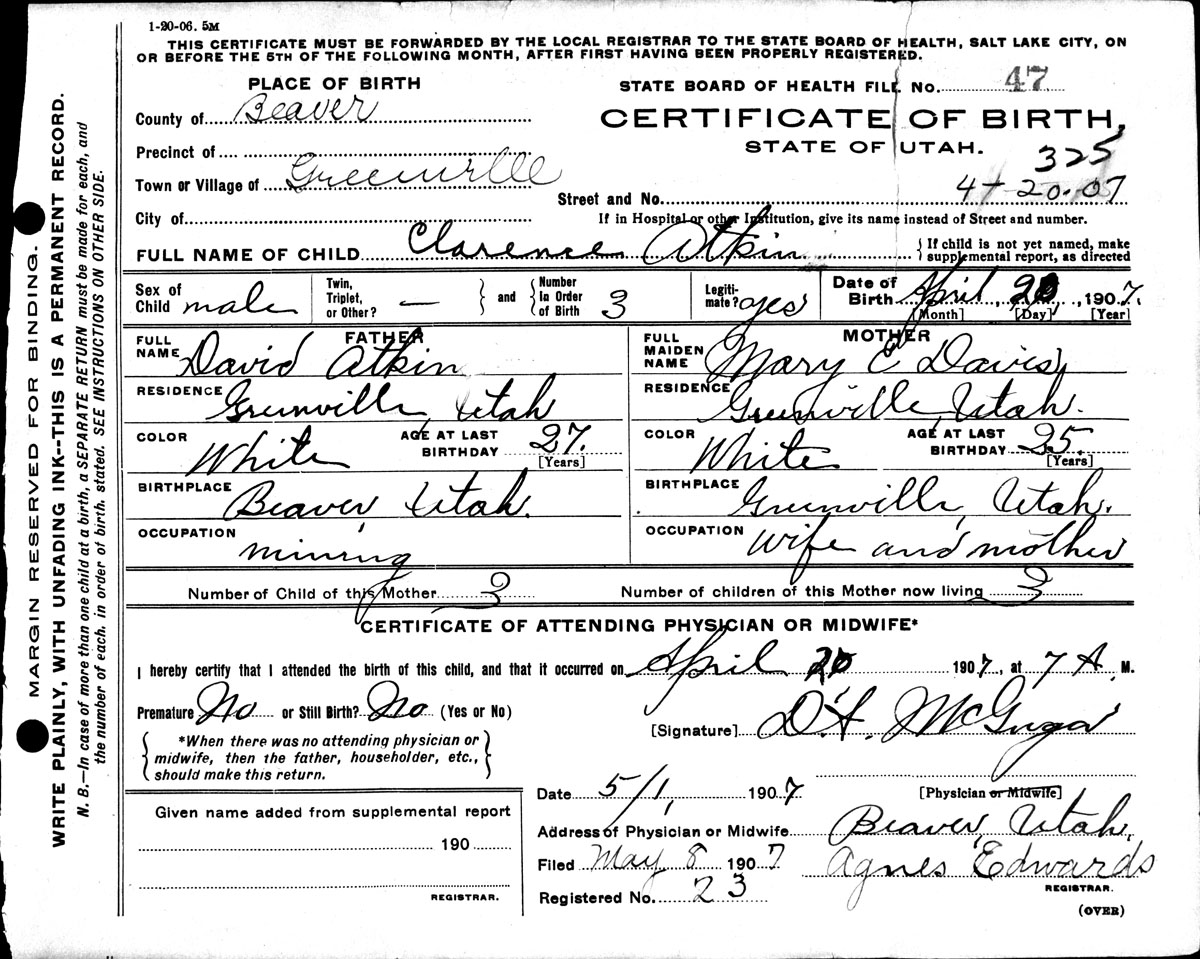 1-20-06. 5M
THIS CERTIFICATE MUST BE FORWARDED BY THE LOCAL REGISTRAR TO THE STATE BOARD OF HEALTH, SALT LAKE CITY, ON
OR BEFORE THE 5TH OF THE FOLLOWING MONTH, AFTER FIRST HAVING BEEN PROPERLY REGISTERED.
PLACE OF BIRTH
County of Beaver
Precinct of
Town or Village of Greenville
City of
STATE BOARD OF HEALTH FILE No. 47
CERTIFICATE OF BIRTH,
STATE OF UTAH.
325
4-20-07
Street and No.
If in Hospital or other Institution, give its name instead of Street and number.
FULL NAME OF CHILD Clarence Atkin
{ If child is not yet named, make
supplemental report, as directed
Sex of Child male
Twin, Triplet, or Other? —
} and { Number In Order of Birth 3
Legiti-mate? yes
Date of Birth April 20, 1907.
[Month] [Day] [Year]
FATHER
FULL NAME David Atkin
RESIDENCE Greenville, Utah
COLOR White
AGE AT LAST BIRTHDAY 27.
[Years]
BIRTHPLACE Beaver, Utah.
OCCUPATION mining
MOTHER
FULL MAIDEN NAME Mary E Davis
RESIDENCE Greenville, Utah.
COLOR White
AGE AT LAST BIRTHDAY 25.
[Years]
BIRTHPLACE Greenville, Utah.
OCCUPATION wife and mother
Number of Child of this Mother 3
Number of children of this Mother now living 3
CERTIFICATE OF ATTENDING PHYSICIAN OR MIDWIFE*
I hereby certify that I attended the birth of this child, and that it occurred on April 20 1907, at 7 A. M.
Premature No or Still Birth? No (Yes or No)
[Signature] D.A. McGregor
*When there was no attending physician or
midwife, then the father, householder, etc.,
should make this return.
[Physician or Midwife]
Date 5/1, 1907
Address of Physician or Midwife Beaver, Utah.
Filed May 8 1907 Agnes Edwards
REGISTRAR.
Registered No. 23
(OVER)
Given name added from supplemental report
190
REGISTRAR.
MARGIN RESERVED FOR BINDING.
WRITE PLAINLY, WITH UNFADING INK--THIS IS A PERMANENT RECORD.
N. B.—In case of more than one child at a birth, a SEPARATE RETURN must be made for each, and
the number of each. in order of birth. stated. SEE INSTRUCTIONS ON OTHER SIDE.